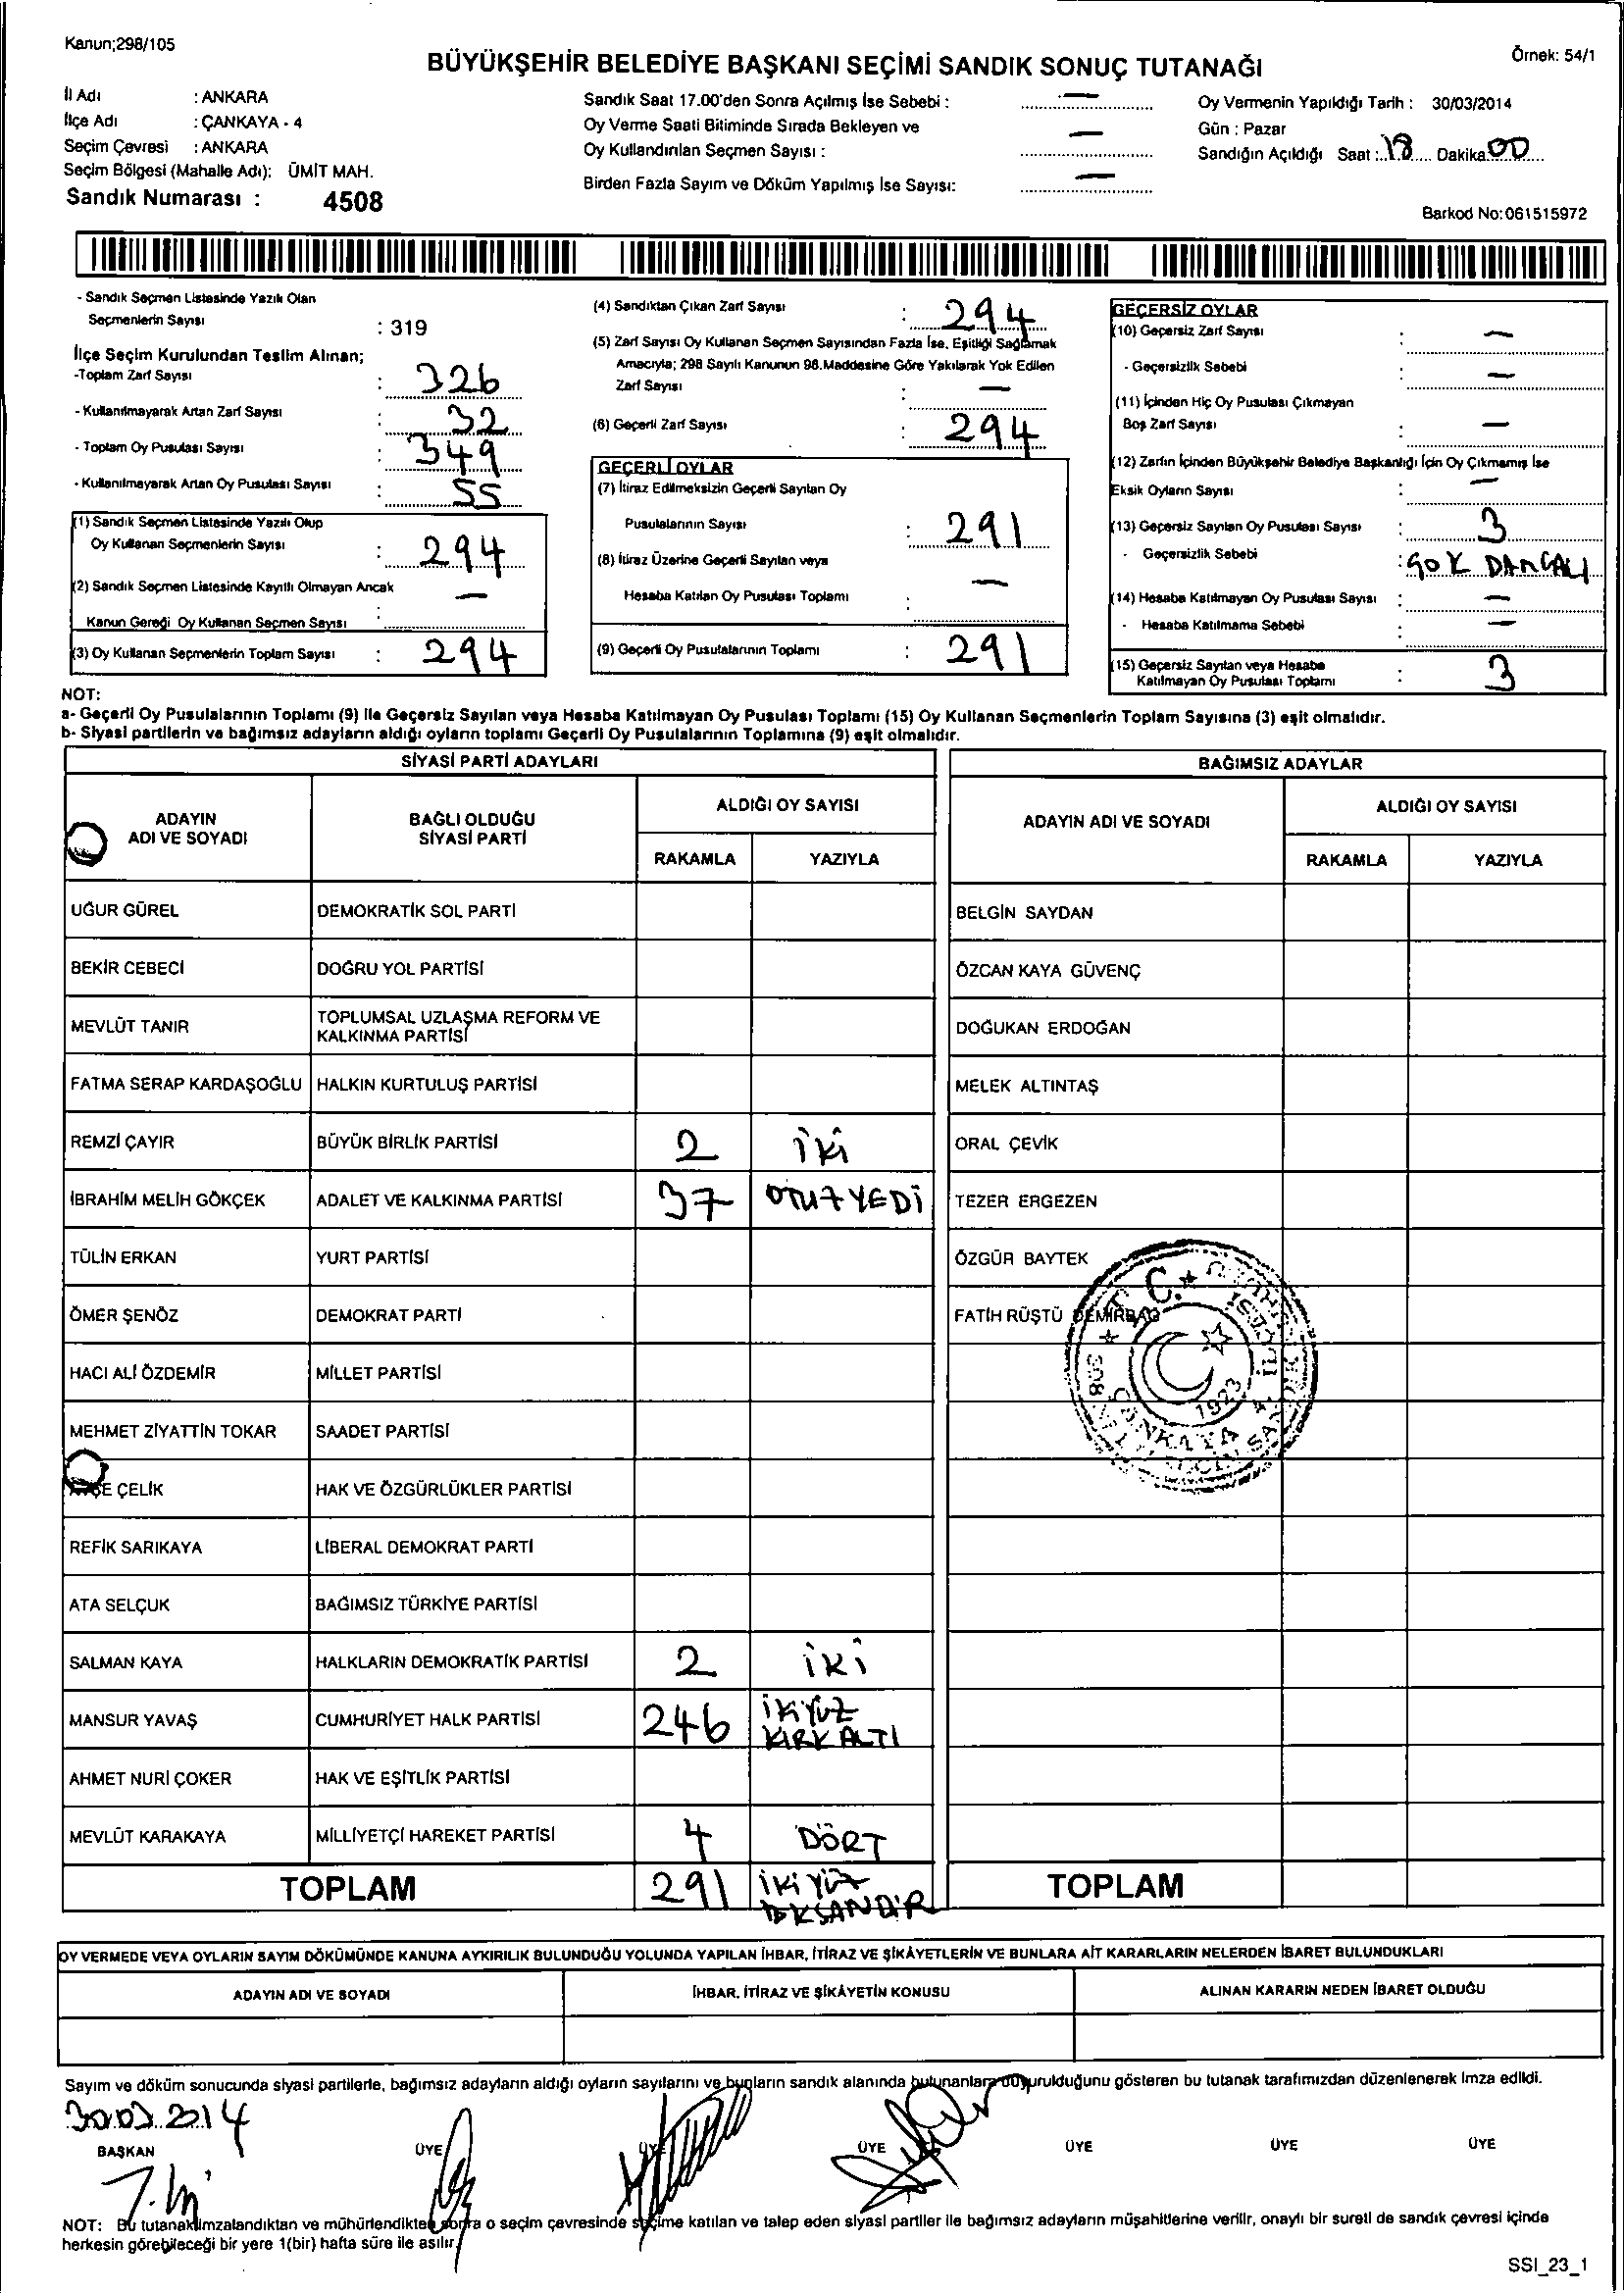 Kanun;298/105
Örnek: 54/1
BÜYÜKŞEHİR BELEDİYE BAŞKANI SEÇİMİ SANDIK SONUÇ TUTANAĞI
İl Adı : ANKARA
İlçe Adı : ÇANKAYA - 4
Seçim Çevresi : ANKARA
Seçim Bölgesi (Mahalle Adı): ÜMİT MAH.
Sandık Numarası : 4508
Sandık Saat 17.00'den Sonra Açılmış İse Sebebi : —
Oy Verme Saati Bitiminde Sırada Bekleyen ve
Oy Kullandırılan Seçmen Sayısı : —
Birden Fazla Sayım ve Döküm Yapılmış İse Sayısı: —
Oy Vermenin Yapıldığı Tarih : 30/03/2014
Gün : Pazar
Sandığın Açıldığı Saat : 18 Dakika 00
Barkod No:061515972
- Sandık Seçmen Listesinde Yazılı Olan
Seçmenlerin Sayısı : 319
İlçe Seçim Kurulundan Teslim Alınan;
-Toplam Zarf Sayısı : 326
- Kullanılmayarak Artan Zarf Sayısı : 32
- Toplam Oy Pusulası Sayısı : 349
- Kullanılmayarak Artan Oy Pusulası Sayısı : 55
(1) Sandık Seçmen Listesinde Yazılı Olup
Oy Kullanan Seçmenlerin Sayısı : 294
(2) Sandık Seçmen Listesinde Kayıtlı Olmayan Ancak
Kanun Gereği Oy Kullanan Seçmen Sayısı : —
(3) Oy Kullanan Seçmenlerin Toplam Sayısı : 294
(4) Sandıktan Çıkan Zarf Sayısı : 294
(5) Zarf Sayısı Oy Kullanan Seçmen Sayısından Fazla İse, Eşitliği Sağlamak
Amacıyla; 298 Sayılı Kanunun 98.Maddesine Göre Yakılarak Yok Edilen
Zarf Sayısı : —
(6) Geçerli Zarf Sayısı : 294
GEÇERLİ OYLAR
(7) İtiraz Edilmeksizin Geçerli Sayılan Oy
Pusulalarının Sayısı : 291
(8) İtiraz Üzerine Geçerli Sayılan veya
Hesaba Katılan Oy Pusulası Toplamı : —
(9) Geçerli Oy Pusulalarının Toplamı : 291
GEÇERSİZ OYLAR
(10) Geçersiz Zarf Sayısı : —
- Geçersizlik Sebebi : —
(11) İçinden Hiç Oy Pusulası Çıkmayan
Boş Zarf Sayısı : —
(12) Zarfın İçinden Büyükşehir Belediye Başkanlığı İçin Oy Çıkmamış İse
Eksik Oyların Sayısı : —
(13) Geçersiz Sayılan Oy Pusulası Sayısı : 3
- Geçersizlik Sebebi : ÇOK DAMGALI
(14) Hesaba Katılmayan Oy Pusulası Sayısı : —
- Hesaba Katılmama Sebebi : —
(15) Geçersiz Sayılan veya Hesaba
Katılmayan Oy Pusulası Toplamı : 3
NOT:
a- Geçerli Oy Pusulalarının Toplamı (9) ile Geçersiz Sayılan veya Hesaba Katılmayan Oy Pusulası Toplamı (15) Oy Kullanan Seçmenlerin Toplam Sayısına (3) eşit olmalıdır.
b- Siyasi partilerin ve bağımsız adayların aldığı oyların toplamı Geçerli Oy Pusulalarının Toplamına (9) eşit olmalıdır.
SİYASİ PARTİ ADAYLARI
ADAYIN
ADI VE SOYADI
BAĞLI OLDUĞU
SİYASİ PARTİ
ALDIĞI OY SAYISI
RAKAMLA YAZIYLA
UĞUR GÜREL DEMOKRATİK SOL PARTİ
BEKİR CEBECİ DOĞRU YOL PARTİSİ
MEVLÜT TANIR TOPLUMSAL UZLAŞMA REFORM VE
KALKINMA PARTİSİ
FATMA SERAP KARDAŞOĞLU HALKIN KURTULUŞ PARTİSİ
REMZİ ÇAYIR BÜYÜK BİRLİK PARTİSİ 2 İKİ
İBRAHİM MELİH GÖKÇEK ADALET VE KALKINMA PARTİSİ 37 OTUZ YEDİ
TÜLİN ERKAN YURT PARTİSİ
ÖMER ŞENÖZ DEMOKRAT PARTİ
HACI ALİ ÖZDEMİR MİLLET PARTİSİ
MEHMET ZİYATTİN TOKAR SAADET PARTİSİ
ÇELİK HAK VE ÖZGÜRLÜKLER PARTİSİ
REFİK SARIKAYA LİBERAL DEMOKRAT PARTİ
ATA SELÇUK BAĞIMSIZ TÜRKİYE PARTİSİ
SALMAN KAYA HALKLARIN DEMOKRATİK PARTİSİ 2 İKİ
MANSUR YAVAŞ CUMHURİYET HALK PARTİSİ 246 İKİYÜZ
KIRK ALTI
AHMET NURİ ÇOKER HAK VE EŞİTLİK PARTİSİ
MEVLÜT KARAKAYA MİLLİYETÇİ HAREKET PARTİSİ 4 DÖRT
TOPLAM 291 İKİ YÜZ
BAĞIMSIZ ADAYLAR
ADAYIN ADI VE SOYADI
ALDIĞI OY SAYISI
RAKAMLA YAZIYLA
BELGİN SAYDAN
ÖZCAN KAYA GÜVENÇ
DOĞUKAN ERDOĞAN
MELEK ALTINTAŞ
ORAL ÇEVİK
TEZER ERGEZEN
ÖZGÜR BAYTEK
FATİH RÜŞTÜ DEMİRBAĞ
T.C.
1923
ÇANKAYA 4.
TOPLAM
OY VERMEDE VEYA OYLARIN SAYIM DÖKÜMÜNDE KANUNA AYKIRILIK BULUNDUĞU YOLUNDA YAPILAN İHBAR, İTİRAZ VE ŞİKÂYETLERİN VE BUNLARA AİT KARARLARIN NELERDEN İBARET BULUNDUKLARI
ADAYIN ADI VE SOYADI İHBAR, İTİRAZ VE ŞİKÂYETİN KONUSU ALINAN KARARIN NEDEN İBARET OLDUĞU
Sayım ve döküm sonucunda siyasi partilerle, bağımsız adayların aldığı oyların sayılarını ve bunların sandık alanında bulunanlara duyurulduğunu gösteren bu tutanak tarafımızdan düzenlenerek imza edildi.
30.03.2014
BAŞKAN ÜYE ÜYE ÜYE ÜYE ÜYE ÜYE
NOT: Bu tutanak imzalandıktan ve mühürlendikten sonra o seçim çevresinde seçime katılan ve talep eden siyasi partiler ile bağımsız adayların müşahitlerine verilir, onaylı bir sureti de sandık çevresi içinde
herkesin görebileceği bir yere 1(bir) hafta süre ile asılır.
SSI_23_1